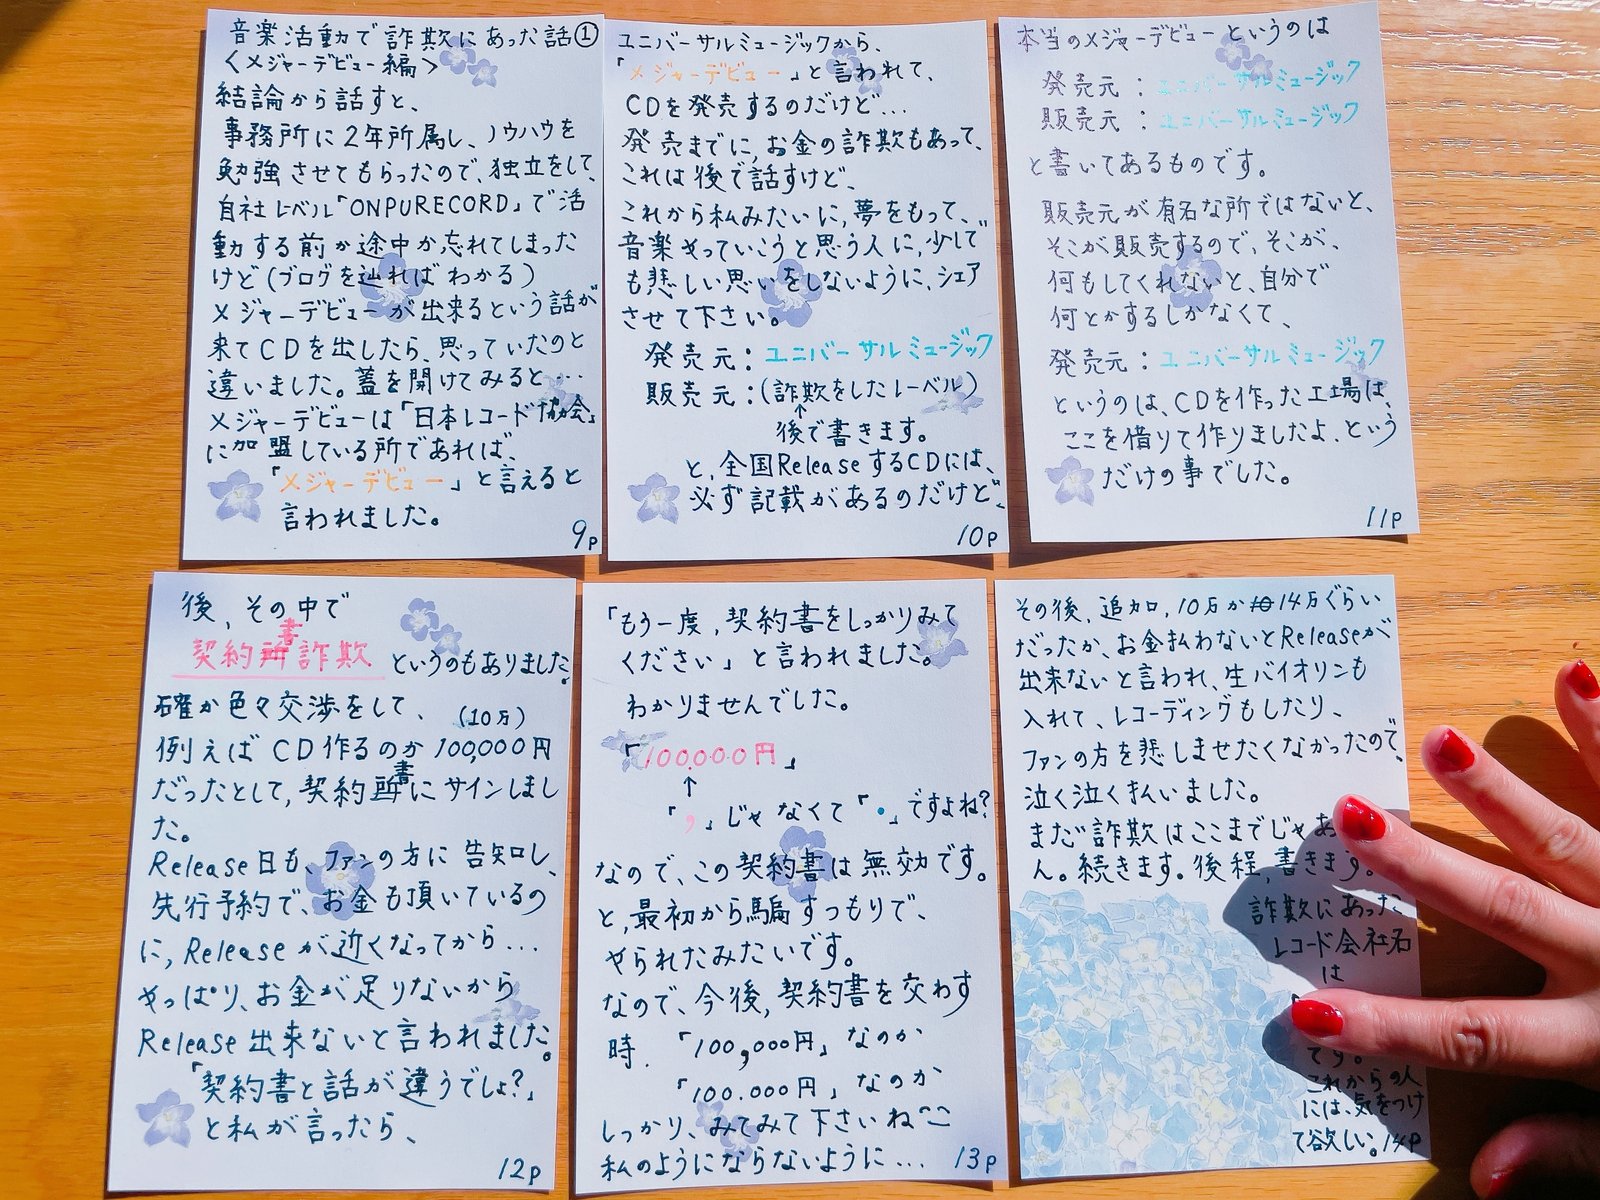 音楽活動で詐欺にあった話①
〈メジャーデビュー編〉
結論から話すと、
事務所に2年所属し、ノウハウを
勉強させてもらったので、独立をして、
自社レベル「ONPURECORD」で活
動する前か途中か忘れてしまった
けど(ブログを辿ればわかる)
メジャーデビューが出来るという話が
来てCDを出したら、思っていたのと
違いました。蓋を開けてみると…
メジャーデビューは「日本レコード協会」
に加盟している所であれば、
「メジャーデビュー」と言えると
言われました。
9p
ユニバーサルミュージックから、
「メジャーデビュー」と言われて、
CDを発売するのだけど…
発売までに、お金の詐欺もあって、
これは後で話すけど、
これから私みたいに、夢をもって、
音楽やっていこうと思う人に、少しで
も悲しい思いをしないように、シェア
させて下さい。
発売元：ユニバーサルミュージック
販売元：(詐欺をしたレーベル)
↑
後で書きます。
と、全国ReleaseするCDには、
必ず記載があるのだけど、
10p
本当のメジャーデビューというのは
発売元：ユニバーサルミュージック
販売元：ユニバーサルミュージック
と書いてあるものです。
販売元が有名な所ではないと、
そこが販売するので、そこが、
何もしてくれないと、自分で
何とかするしかなくて、
発売元：ユニバーサルミュージック
というのは、CDを作った工場は、
ここを借りて作りましたよ、という
だけの事でした。
11p
後、その中で
契約書詐欺というのもありました。
確か色々交渉をして、(10万)
例えばCD作るのが100,000円
だったとして、契約書にサインしまし
た。
Release日も、ファンの方に告知し、
先行予約で、お金も頂いているの
に、Releaseが近くなってから…
やっぱり、お金が足りないから
Release出来ないと言われました。
「契約書と話が違うでしょ?」
と私が言ったら、
12p
「もう一度、契約書をしっかりみて
ください」と言われました。
わかりませんでした。
「100.000円」
↑
「,」じゃなくて「・」ですよね?
なので、この契約書は無効です。
と、最初から騙すつもりで、
やられたみたいです。
なので、今後、契約書を交わす
時、「100,000円」なのか
「100.000円」なのか
しっかり、みてみて下さいね^^
私のようにならないように…
13p
その後、追加、10万か14万ぐらい
だったか、お金払わないとReleaseが
出来ないと言われ、生バイオリンも
入れて、レコーディングもしたり、
ファンの方を悲しませたくなかったので、
泣く泣く払いました。
まだ詐欺はここまでじゃあ
ん。続きます。後程、書きます。
詐欺にあった
レコード会社名
は
「
です。
これからの人
には、気をつけ
て欲しい。14p